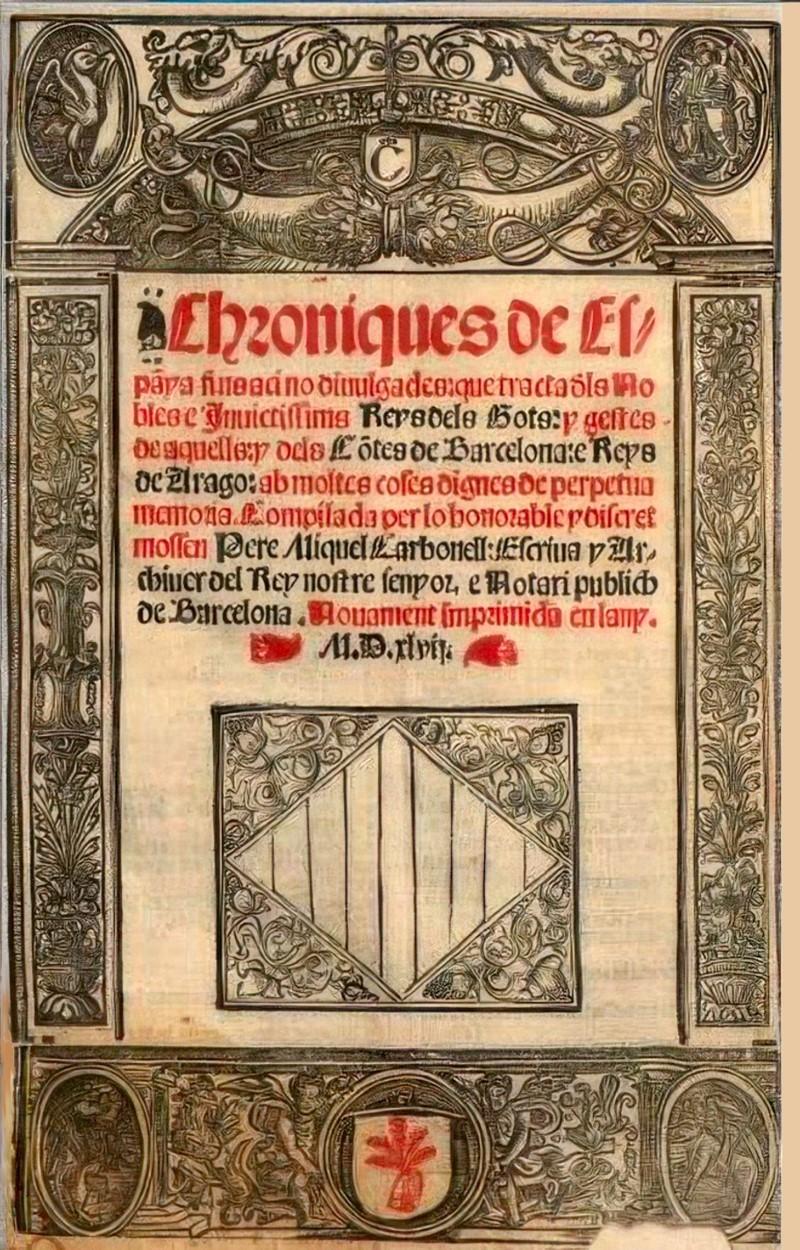 C
Chroniques de Eſ⸗
pāya fins aci no diuulgades: que tracta dls No
bles e Inuictissims Reys dels Gots: y gestes
de aquells: y dels Cōtes de Barcelona: e Reys
de Arago: ab moltes coses dignes de perpetua
memoria. Compilada per lo honorable y discret
mossen Pere Miquel Carbonell: Escriua y Ar⸗
chiuer del Rey nostre senyor, e Notari publich
de Barcelona. Nouament imprimida en lany.
M.D.xlvij.